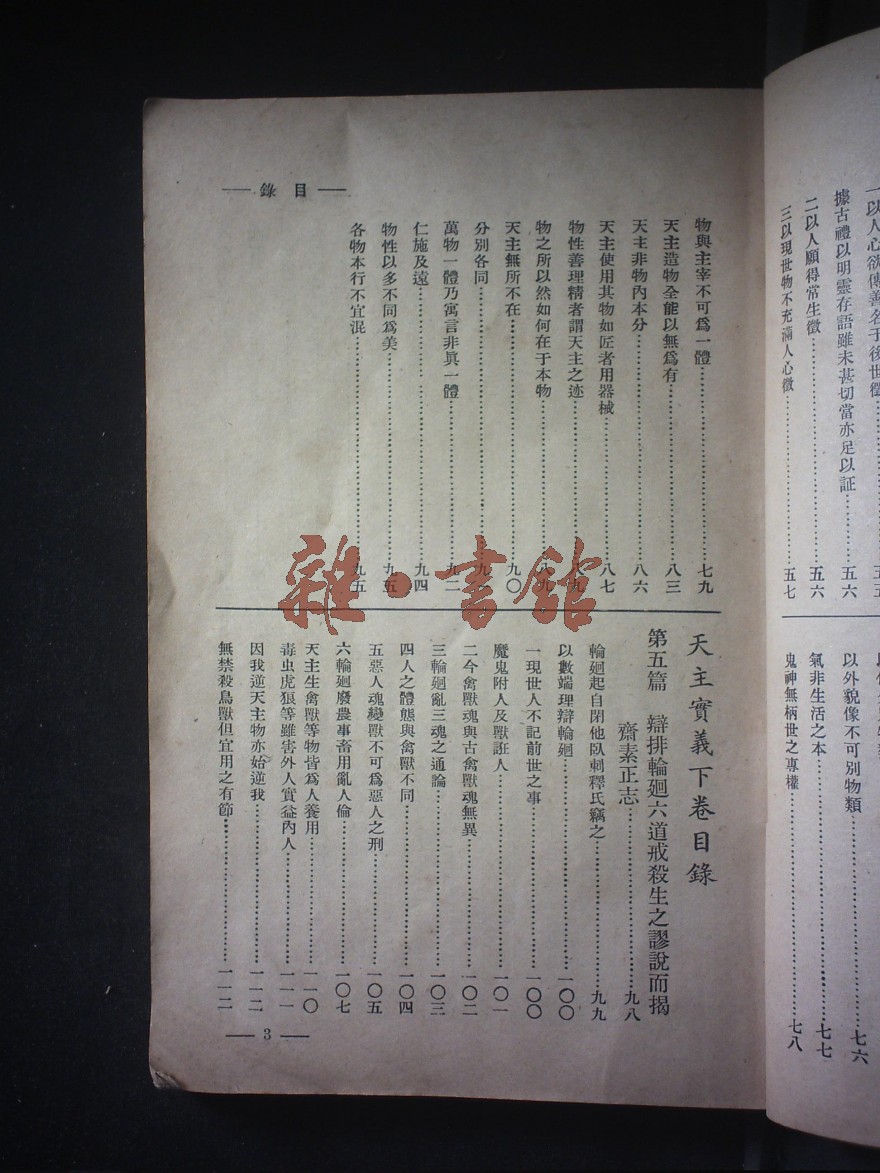 一以人心欲傳善名于後世徵……五五
據古禮以明靈存語雖未甚切當亦足以証……五六
二以人願得常生徵……五六
三以現世物不充滿人心徵……五七
以外貌像不可別物類……七六
氣非生活之本……七七
鬼神無柄世之專權……七八
— 目錄 —
物與主宰不可爲一體……七九
天主造物全能以無爲有……八三
天主非物內本分……八六
天主使用其物如匠者用器械……八七
物性善理精者謂天主之迹……八九
物之所以然如何在于本物……八九
天主無所不在……九〇
分別各同……九一
萬物一體乃寓言非眞一體……九二
仁施及遠……九四
物性以多不同爲美……九五
各物本行不宜混……九五
天主實義下卷目錄
第五篇 辯排輪廻六道戒殺生之謬說而揭
齋素正志……九八
輪廻起自閉他臥剌釋氏竊之……九九
以數端理辯輪廻……一〇〇
一現世人不記前世之事……一〇〇
魔鬼附人及獸誑人……一〇一
二今禽獸魂與古禽獸魂無異……一〇二
三輪廻亂三魂之通論……一〇三
四人之體態與禽獸不同……一〇四
五惡人魂變獸不可爲惡人之刑……一〇五
六輪廻廢農事畜用亂人倫……一〇七
天主生禽獸等物皆爲人養用……一一〇
毒虫虎狼等雖害外人實益內人……一一一
因我逆天主物亦始逆我……一一二
無禁殺鳥獸但宜用之有節……一一二
— 3 —
雜·書館